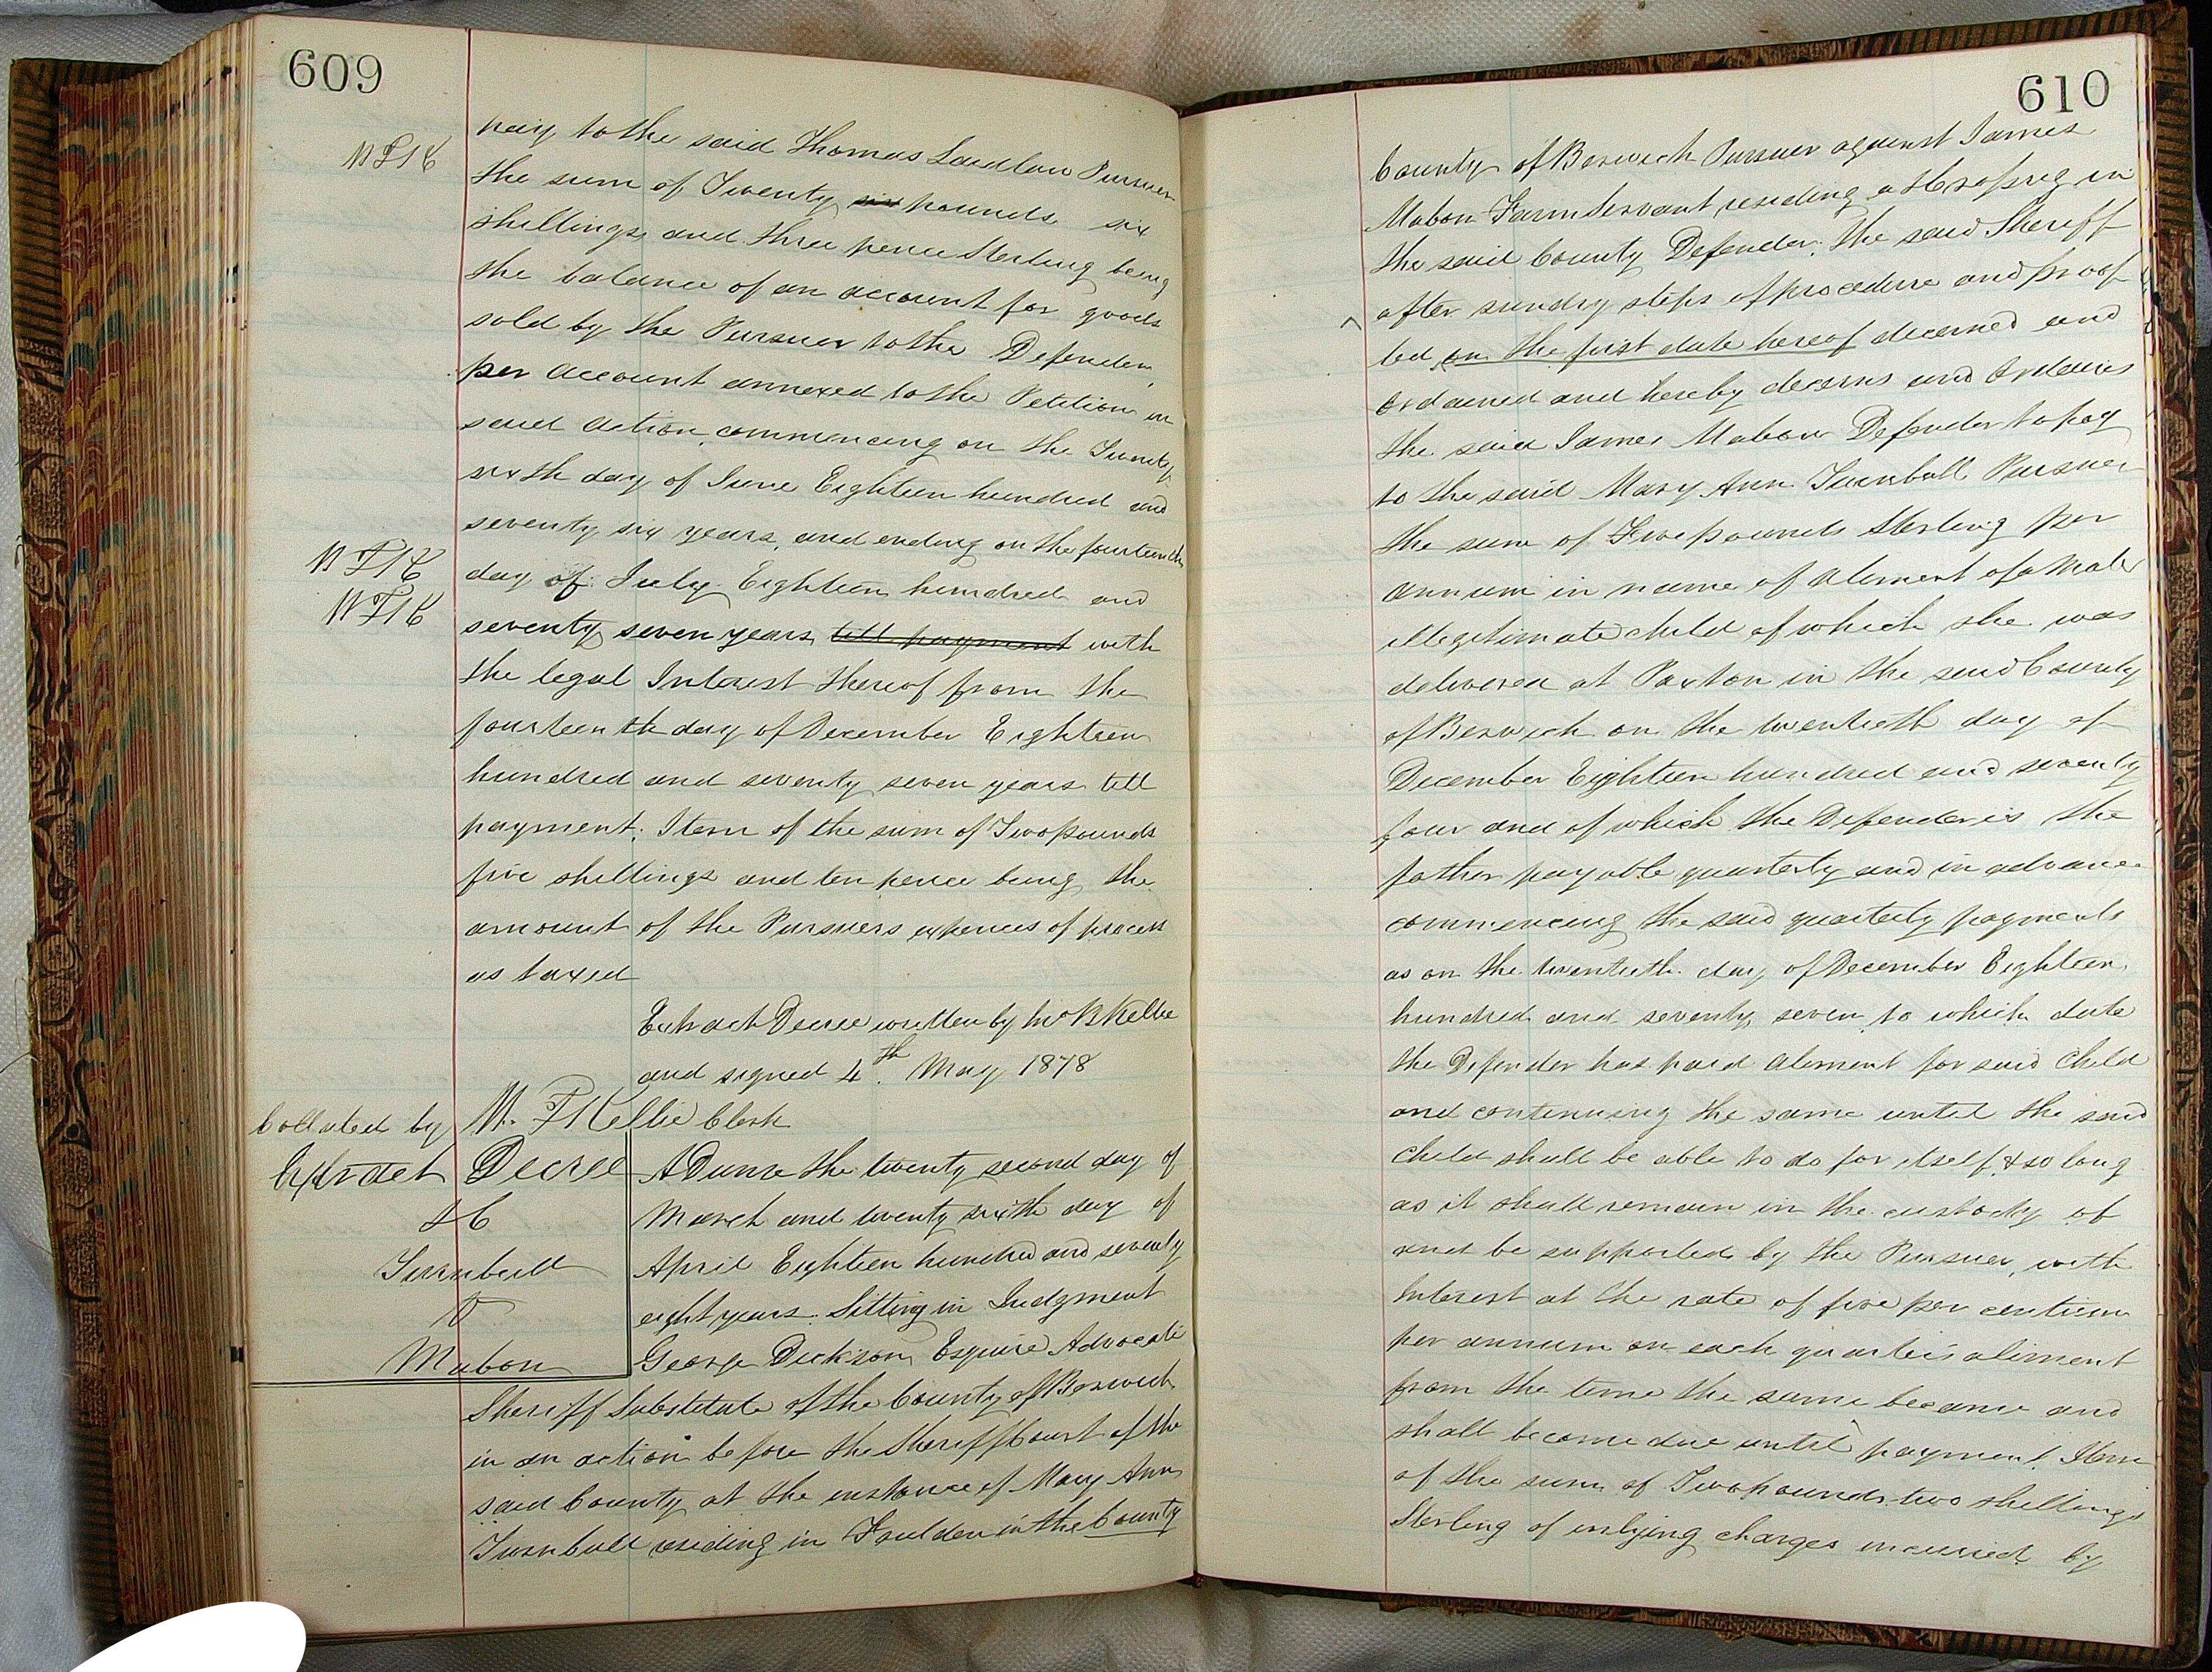 609
pay to the said Thomas Laidlaw Pursuer
W F K
the sum of Twenty six pounds six
shillings and three pence Sterling being
the balance of an account for goods
sold by the Pursuer to the Defender,
per account annexed to the Petition in
said action, commencing on the Twenty
sixth day of June Eighteen hundred and
seventy six years, and ending on the fourteenth
W F K
day of July Eighteen hundred and
W F K
seventy seven years till payment with
the legal Interest thereof from the
fourteenth day of December Eighteen
hundred and seventy seven years till
payment; Item of the sum of Two pounds
five shillings and ten pence being the
amount of the Pursuers expences of process
as taxed
Extract Decree written by B Kellie
and signed 4th. May 1878
Collated by W. F Kellie Clerk
Extract Decree
Turnbull
v
Mabon
At Dunse the twenty second day of
March and twenty sixth day of
April Eighteen hundred and seventy
eight years. Sitting in Judgment
George Dickson Esquire Advocate
Sheriff Substitute of the County of Berwick
in an action before the Sheriff Court of the
said County at the instance of Mary Ann
Turnbull residing in Foulden in the County
610
County of Berwick Pursuer against James
Mabon Farm Servant residing at in
the said County Defender. The said Sheriff
after sundry steps of procedure and proof
led on the first date hereof decerned and
ordained and hereby decerns and Ordains
the said James Mabon Defender to pay
to the said Mary Ann Turnbull Pursuer
the sum of Five pounds Sterling per
annum in name of aliment of a Male
illegitimate child of which she was
delivered at Paxton in the said County
of Berwick on the twentieth day of
December Eighteen hundred and seventy
four and of which the Defender is the
father payable quarterly and in advance
commencing the said quarterly payments
as on the twentieth day of December Eighteen
hundred and seventy seven to which date
the Defender has paid aliment for said Child
and continuing the same until the said
Child shall be able to do for itself, & so long
as it shall remain in the custody of
and be supported by the Pursuer, with
Interest at the rate of five per centum
per annum on each quarter's aliment
from the time the same became and
shall become due until payment. Item
of the sum of Two pounds two shillings
Sterling of inlying charges incurred by